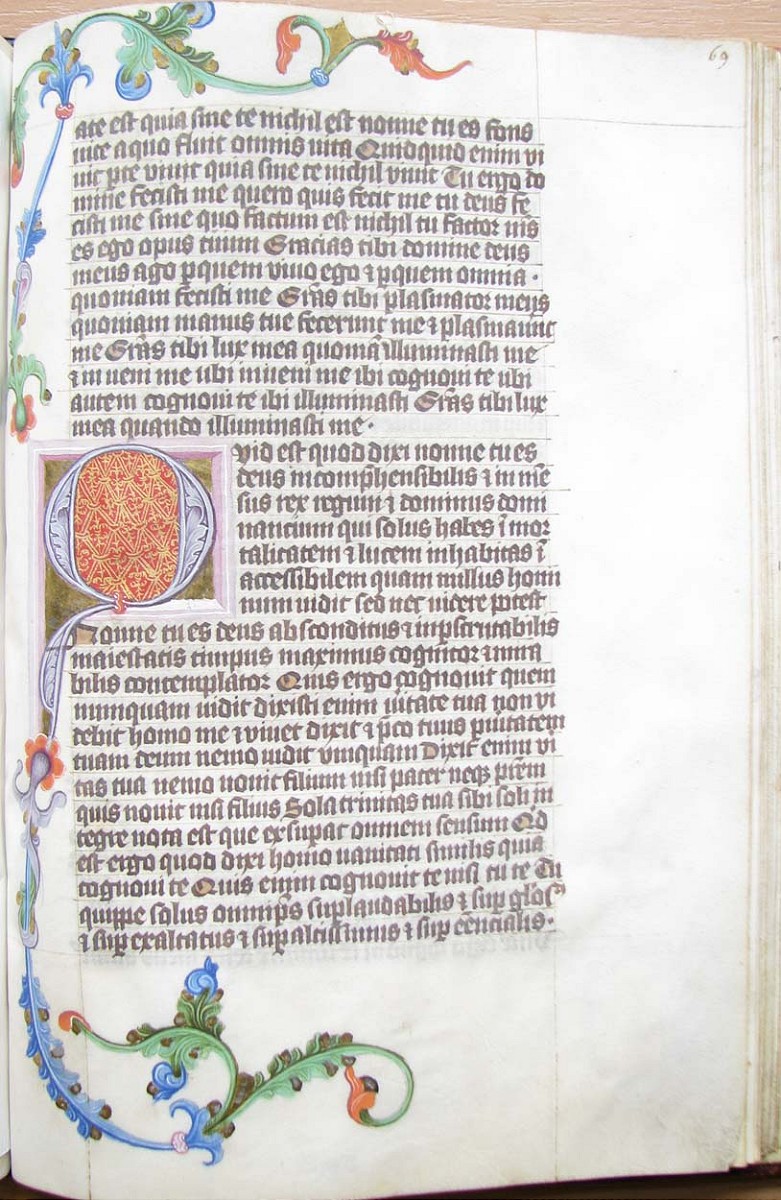 69
ate est quia sine te nichil est nonne tu es fons
uite a quo fluit omnis uita Quidquid enim vi
uit per te viuit quia sine te nichil viuit Tu ergo do
mine fecisti me quero quis fecit me tu deus fe
cisti me sine quo factum est nichil tu factor meus
es ego opus tuum Gracias tibi domine deus
meus ago p quem viuo ego ⁊ p quem omnia ·
quoniam fecisti me Grãs tibi plasmator meus
quoniam manus tue fecerunt me ⁊ plasmauerunt
me Grãs tibi lux mea quoniã illuminasti me
⁊ inueni me ubi inueni me ibi cognoui te ubi
autem cognoui te ibi illuminasti Grãs tibi lux
mea quando illuminasti me ·
Qvid est quod dixi nonne tu es
deus incomphensibilis ⁊ inmē
sus rex regum ⁊ dominus domi
nantium qui solus habes ī mor
talitatem ⁊ lucem inhabitas ī
accessibilem quam nullus homi
num uidit sed nec uidere potest
Nonne tu es deus absconditus ⁊ inpscrutabilis
maiestatis tuipsius maximus cognitor ⁊ mira
bilis contemplator Quis ergo cognouit quem
nunquam uidit dixisti enim ūitate tua non vi
debit homo me ⁊ viuet dixit ⁊ p̄co tuus p̄ ūitatem
tuam deum nemo uidit vmquam Dixit enim vi
tas tua nemo nouit filium nisi pater neqȝ p̄rem
quis nouit nisi filius Sola trinitas tua sibi soli in
tegre nota est que exsupat omnem sensum Qd
est ergo quod dixi homo uanitati similis quia
cognoui te Quis enim cognouit te nisi tu te Tu
quippe solus omnip̄s suplaudabilis ⁊ sup glōs
⁊ sup exaltatus ⁊ sup altissimus ⁊ sup eēncialis ·